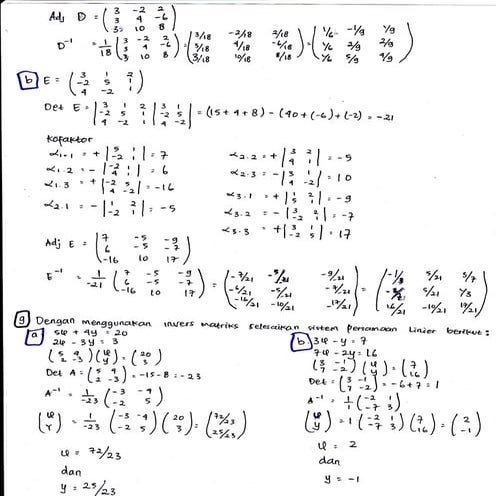 Adj D = (3 -2 2 / 3 4 -6 / 3 10 8)
D⁻¹ = 1/18 (3 -2 2 / 3 4 -6 / 3 10 8) = (3/18 -2/18 2/18 / 3/18 4/18 -6/18 / 3/18 10/18 8/18) = (1/6 -1/9 1/9 / 1/6 2/9 2/9 / 1/6 5/9 4/9)
b E = (3 1 2 / -2 5 1 / 4 -2 1)
Det E = |3 1 2 / -2 5 1 / 4 -2 1| 3 1 / -2 5 / 4 -2| = (15 + 4 + 8) - (40 + (-6) + (-2) = -21
Kofaktor
α1.1 = + |5 1 / -2 1| = 7
α1.2 = - |-2 1 / 4 1| = 6
α1.3 = + |-2 5 / 4 -2| = -16
α2.1 = - |1 2 / -2 1| = -5
α2.2 = + |3 2 / 4 1| = -5
α2.3 = - |3 1 / 4 -2| = 10
α3.1 = + |1 2 / 5 1| = -9
α3.2 = - |3 2 / -2 1| = -7
α3.3 = + |3 1 / -2 5| = 17
Adj E = (7 -5 -9 / 6 -5 -7 / -16 10 17)
E⁻¹ = 1/-21 (7 -5 -9 / 6 -5 -7 / -16 10 17) = (-7/21 -5/21 -9/21 / -6/21 -5/21 -7/21 / -16/21 -10/21 -17/21) = (-1/3 5/21 3/7 / 5/21 1/3 / 16/21 -10/21 17/21)
9 Dengan menggunakan invers matriks selesaikan sistem Persamaan Linier berikut:
a 5x + 4y = 20
2x - 3y = 3
(5 4 / 2 -3) (x / y) = (20 / 3)
Det A = (5 4 / 2 -3) = -15 - 8 = -23
A⁻¹ = 1/-23 (-3 -4 / -2 5)
(x / y) = 1/-23 (-3 -4 / -2 5) (20 / 3) = (72/23 / 25/23)
x = 72/23
dan
y = 25/23
b 3x - y = 7
7x - 2y = 16
(3 -1 / 7 -2) (x / y) = (7 / 16)
Det = (3 -1 / 7 -2) = -6 + 7 = 1
A⁻¹ = 1/1 (-2 1 / -7 3)
(x / y) = 1 (-2 1 / -7 3) (7 / 16) = (2 / -1)
x = 2
dan
y = -1